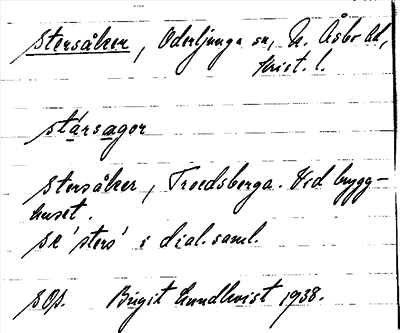 Stersåker, Oderljunga sn, N. Åsbo hd,
Krist. l.
stársagor
Stersåker, Troedsberga. Vid brygg-
huset.
se 'sters' i dial.saml.
sOp. Birgit Lundkvist 1938.